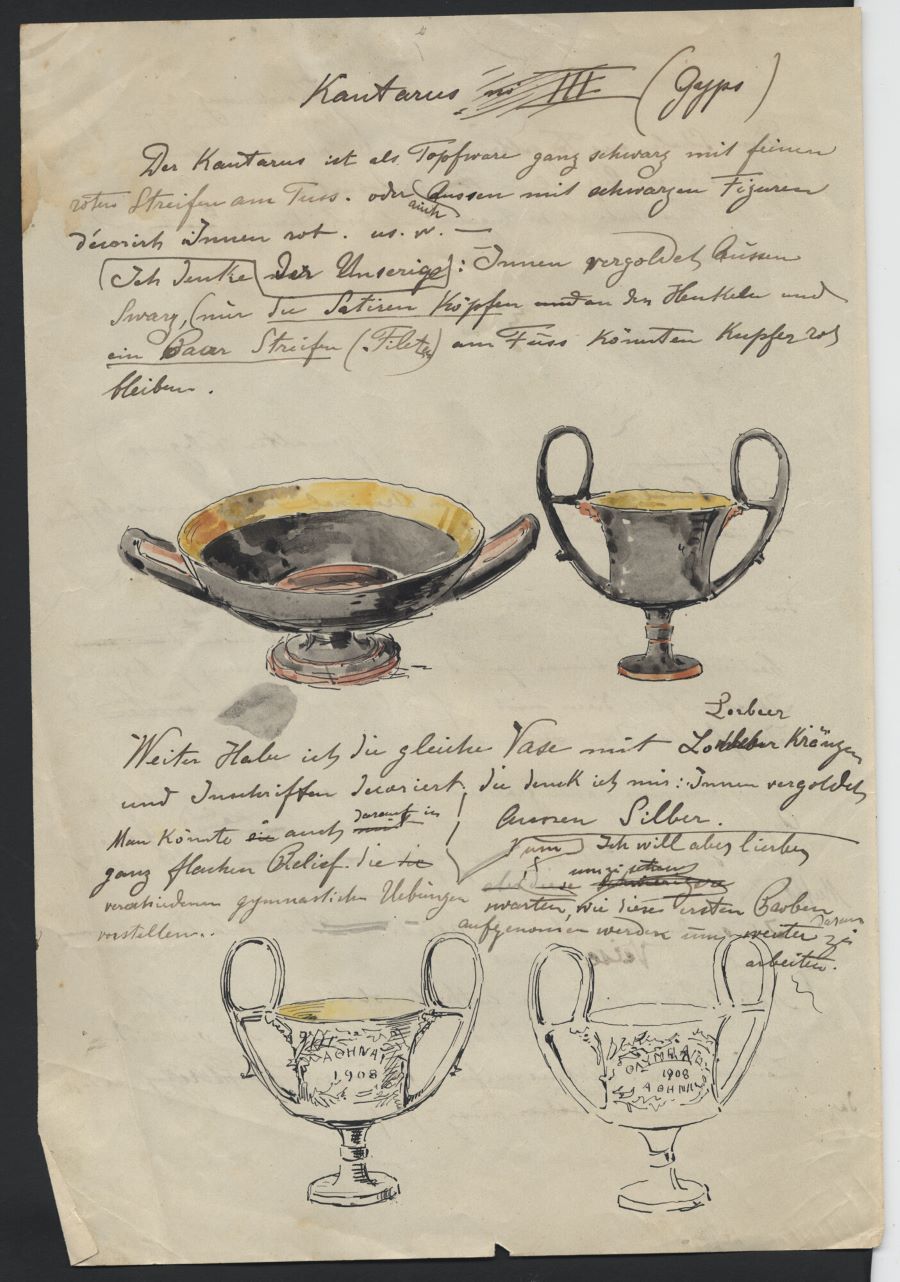 Kantarus no III (Gyps)
Der Kantarus ist als Topfware ganz schwarz mit feinen
roten Streifen am Fuss. oder Aussen mit schwarzen Figuren
auch
décorirt Innen rot. us. w. —
Ich denke Der Unserige: Innen vergoldet Aussen
Swarz, (nur die Satiren Köpfen an den Henkeln und
ein Paar Streifen (Filets) am Fuss könnten Kupfer rot
bleiben.
Lorbeer
Weiter Habe ich die gleiche Vase mit Kränzen
und Inschriften decoriert. die denk ich mir: Innen vergoldet
Aussen Silber.
Man könnte auch darauf in
ganz flachen Relief. die
verschiedenen gymnastischen Uebungen
vorstellen..
Ich will aber lieber
warten, wie diese ersten Proben
aufgenommen werden um weiter zu
daran
arbeiten.
ΑΘΗΝΑΙ
1908
ΟΛΥΜΠΙΑ
1908
ΑΘΗΝΑΙ